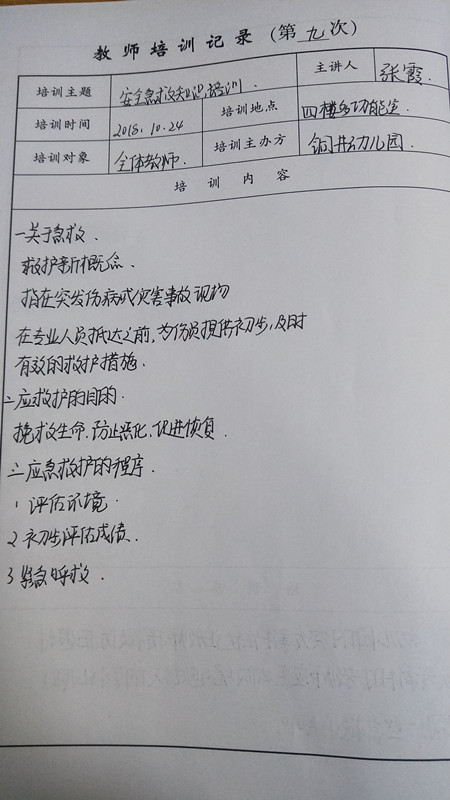 教师培训记录（第九次）
培训主题 安全急救知识培训. 主讲人 张霞.
培训时间 2018.10.24 培训地点 四楼多功能室
培训对象 全体教师. 培训主办方 铜井幼儿园.
培训内容
一关于急救.
救护新概念.
指在突发伤病或灾害事故现场
在专业人员抵达之前,为伤员提供初步,及时
有效的救护措施.
二应救护的目的.
挽救生命.防止恶化.促进恢复.
三应急救护的程序.
1 评估环境.
2 初步评估成绩.
3 紧急呼救.